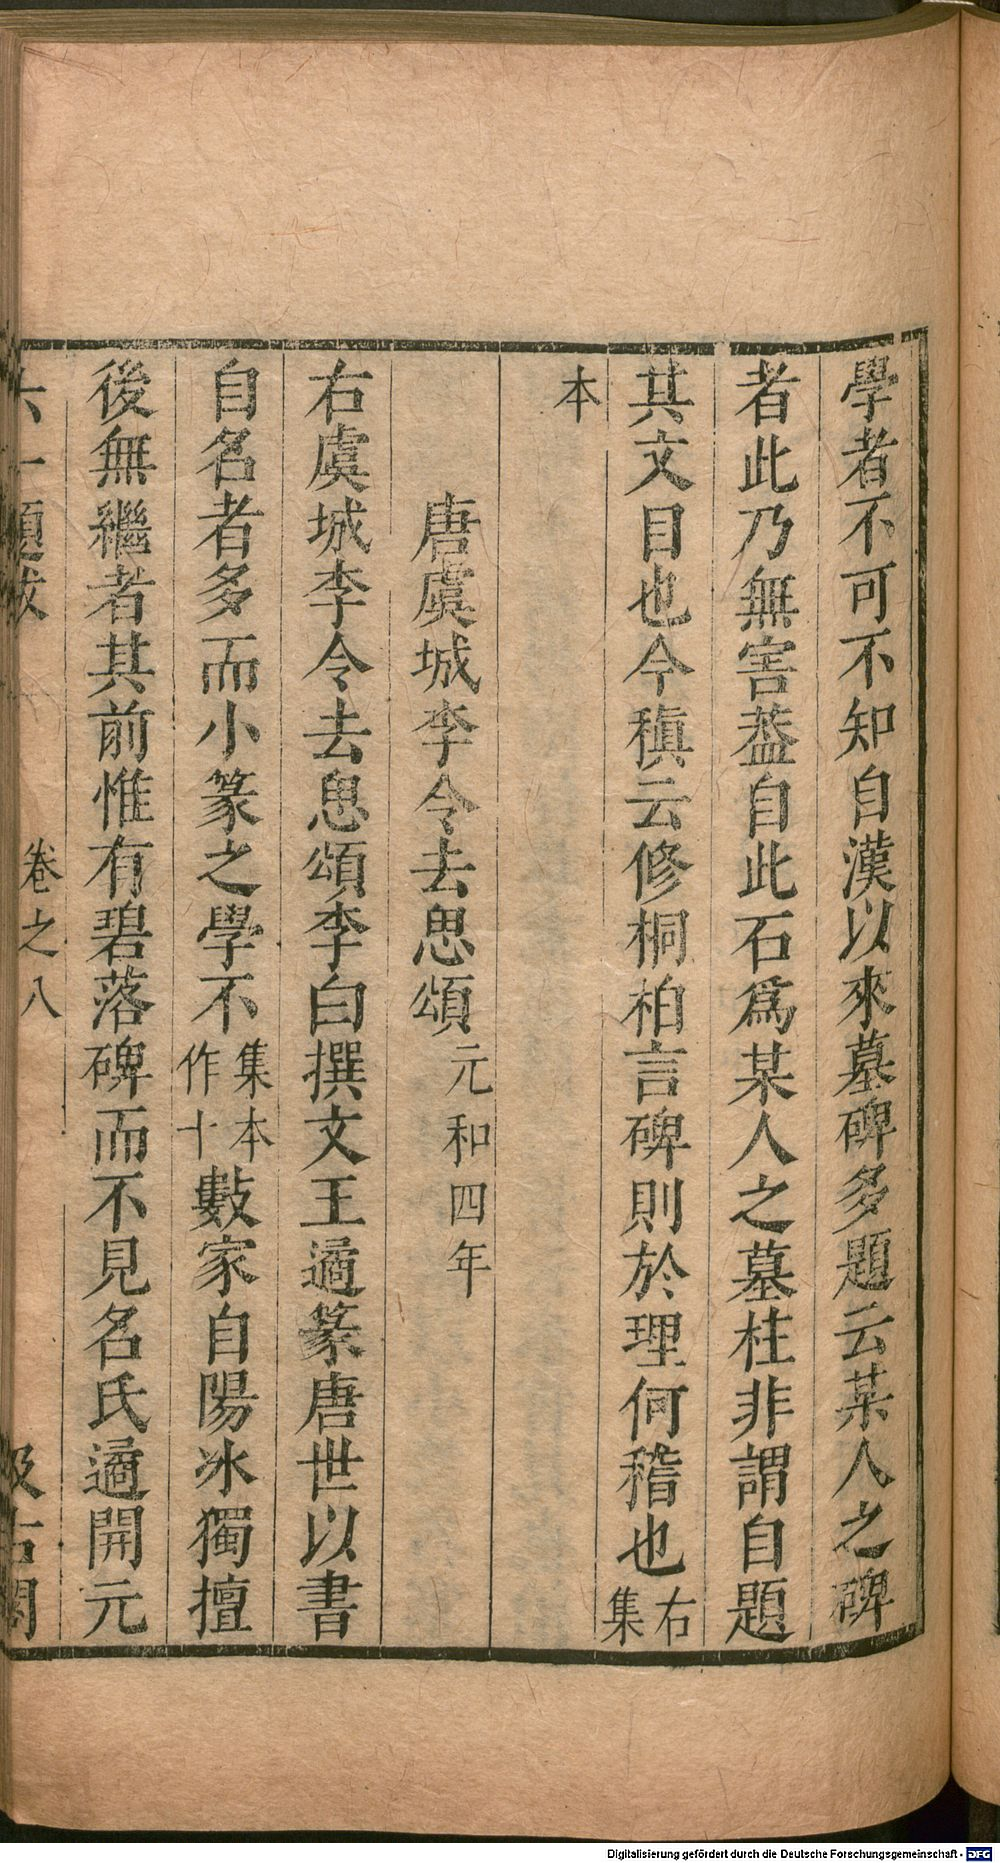 學者不可不知自漢以來墓碑多題云某人之碑
者此乃無害葢自此石爲某人之墓柱非謂自題
其文目也今稹云修桐柏言碑則於理何稽也右集
本
唐虞城李令去思頌元和四年
右虞城李令去思頌李白撰文王遹篆唐世以書
自名者多而小篆之學不集本作十數家自陽冰獨擅
後無繼者其前惟有碧落碑而不見名氏遹開元
六一題跋 卷之八 汲古閣
Digitalisierung gefördert durch die Deutsche Forschungsgemeinschaft - DFG